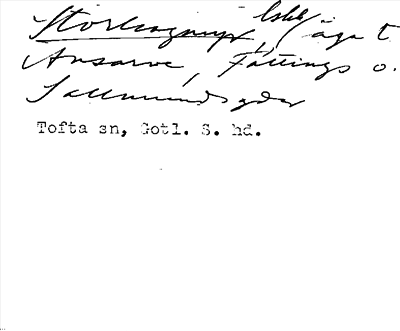 Storhagmyr, äga t
Ansarve, Fättings o.
Sallmundsgdar
Tofta sn, Gotl. S. hd.